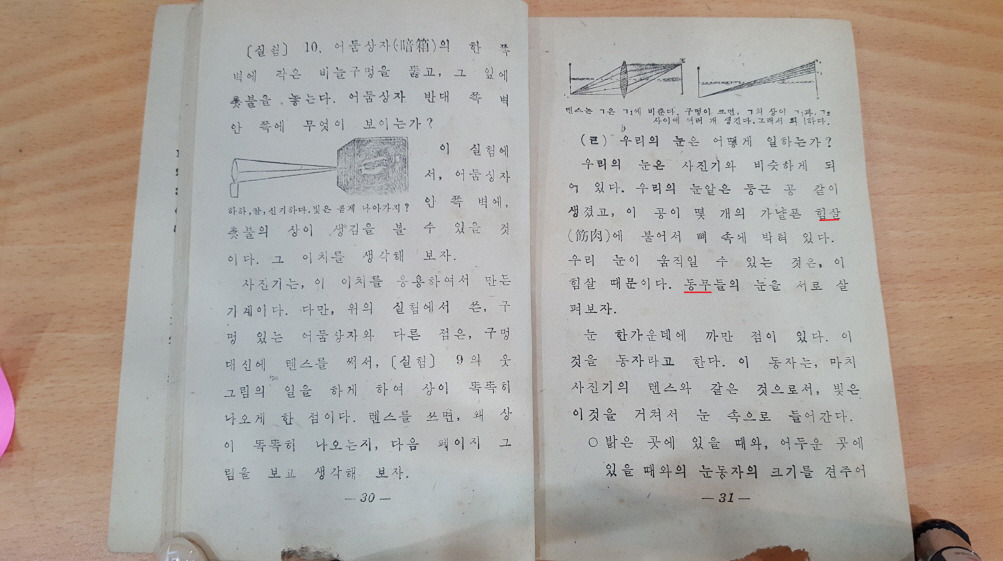 〔실험〕 10. 어둠상자(暗箱)의 한 쪽
벽에 작은 바늘구멍을 뚫고, 그 앞에
촛불을 놓는다. 어둠상자 반대 쪽 벽
안 쪽에 무엇이 보이는가?
이 실험에
서, 어둠상자
안 쪽 벽에,
하하, 참, 신기하다. 빛은 곧게 나아가지?
촛불의 상이 생김을 볼 수 있을 것
이다. 그 이치를 생각해 보자.
사진기는, 이 이치를 응용하여서 만든
기계이다. 다만, 위의 실험에서 쓴, 구
멍 있는 어둠상자와 다른 점은, 구멍
대신에 렌스를 써서, 〔실험〕 9의 웃
그림의 일을 하게 하여 상이 똑똑히
나오게 한 점이다. 렌스를 쓰면, 왜 상
이 똑똑히 나오는지, 다음 페이지 그
림을 보고 생각해 보자.
— 30 —
렌스는 ㄱ은 ㄱ₁에 비춘다. 구멍이 크면, ㄱ의 상이 ㄱ₁과, ㄱ₂
사이에 여러 개 생긴다. 그래서 희 하다.
(ㄹ) 우리의 눈은 어떻게 일하는가?
우리의 눈은 사진기와 비슷하게 되
어 있다. 우리의 눈알은 둥근 공 같이
생겼고, 이 공이 몇 개의 가냘픈 힘살
(筋肉)에 붙어서 뼈 속에 박혀 있다.
우리 눈이 움직일 수 있는 것은, 이
힘살 때문이다. 동무들의 눈을 서로 살
펴보자.
눈 한가운데에 까만 점이 있다. 이
것을 동자라고 한다. 이 동자는, 마치
사진기의 렌스와 같은 것으로서, 빛은
이것을 거쳐서 눈 속으로 들어간다.
○ 밝은 곳에 있을 때와, 어두운 곳에
있을 때와의 눈동자의 크기를 견주어
— 31 —